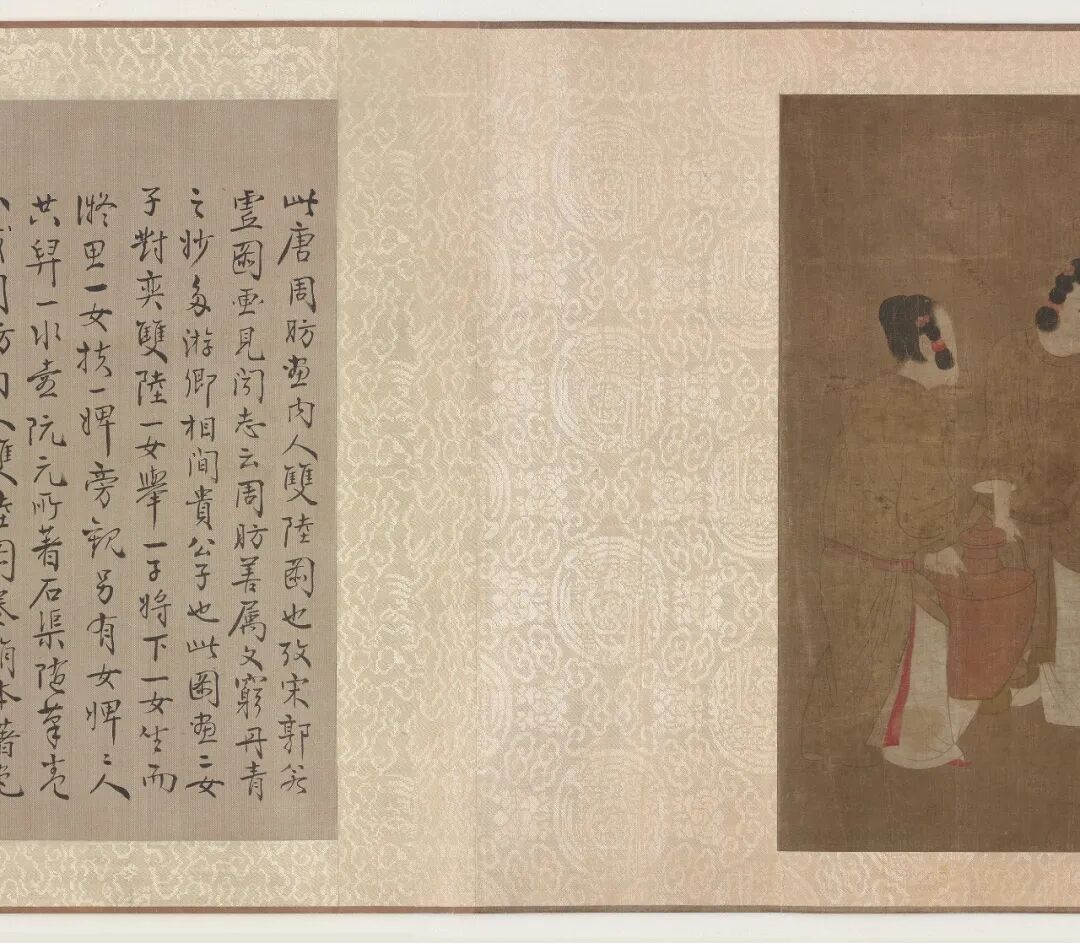 此唐周昉畫内人雙陸圖也攷宋郭若
虛圖畫見聞志云周昉善屬文窮丹青
之妙多游卿相間貴公子也此圖畫二女
子對奕雙陸一女舉一子將下一女坐而
凝思一女扶一婢旁觀另有女婢二人
共舁一水壺阮元所著石渠隨筆卷
周昉内人雙陸圖卷絹本著色